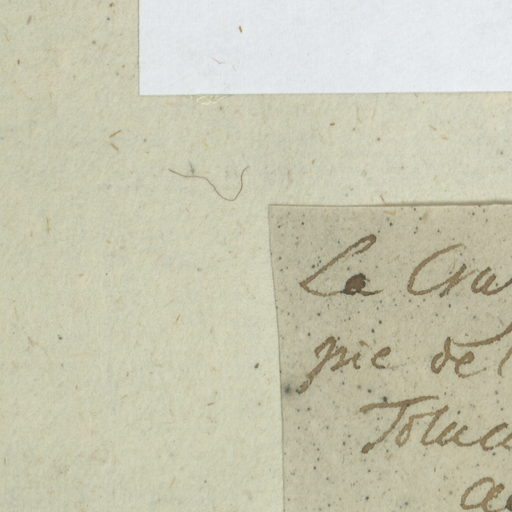 La Cra
pie de
Toluca